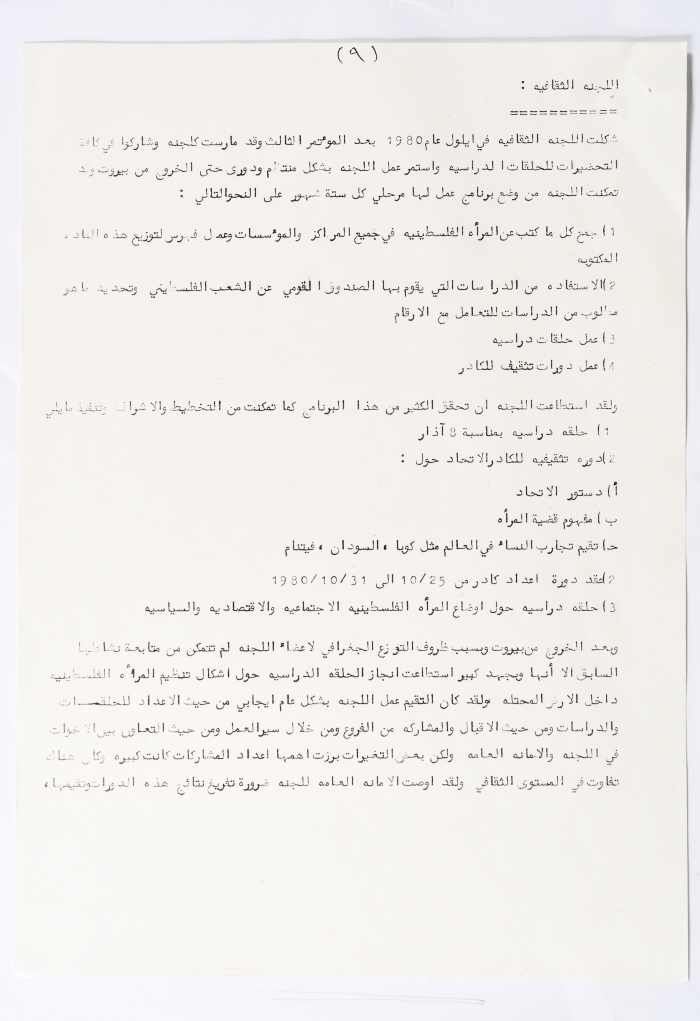 (٩)
اللجنه الثقافيه :
===========
شكلت اللجنه الثقافيه في ايلول عام 1980 بعد الموءتمر الثالث وقد مارست كلجنه وشاركوا في كافة
التحضيرات للحلقات الدراسيه واستمر عمل اللجنه بشكل منتظم ودورى حتى الخروج من بيروت وقد
تمكنت اللجنه من وضع برنامج عمل لها مرحلي كل ستة شهور على النحوالتالي :
1) جمع كل ما كتب عن المرأه الفلسطينيه في جميع المراكز والموءسسات وعمل فهرس لتوزيع هذه الماده
المكتوبه
2) الاستفاده من الدراسات التي يقوم بها الصندوق القومي عن الشعب الفلسطيني وتحديد ماهو
مطلوب من الدراسات للتعامل مع الارقام
3) عمل حلقات دراسيه
4) عمل دورات تثقيف للكادر
ولقد استطاعت اللجنه ان تحقق الكثير من هذا البرنامج كما تمكنت من التخطيط والاشراف وتنفيذ مايلي
1) حلقه دراسيه بمناسبة 8 آذار
2) دوره تثقيفيه للكادر الاتحاد حول :
أ) دستور الاتحاد
ب) مفهوم قضية المرأه
حـ) تقيم تجارب النساء في العالم مثل كوبا ، السودان ، فيتنام
2) عقد دورة اعداد كادر من 10/25 الى 1980/10/31
3) حلقه دراسيه حول اوضاع المرأه الفلسطينيه الاجتماعيه والاقتصاديه والسياسيه
وبعد الخروج من بيروت وبسبب ظروف التوزع الجغرافي لاعضاء اللجنه لم تتمكن من متابعة نشاطها
السابق الا أنها وبجهد كبير استطاعت انجاز الحلقه الدراسيه حول اشكال تنظيم المرأه الفلسطينيه
داخل الارض المحتله ولقد كان التقيم عمل اللجنه بشكل عام ايجابي من حيث الاعداد للحلقـــات
والدراسات ومن حيث الاقبال والمشاركه من الفروع ومن خلال سير العمل ومن حيث التعاون بين الاخوات
في اللجنه والامانه العامه ولكن بعض التغيرات برزت اهمها اعداد المشاركات كانت كبيره وكان هناك
تفاوت في المستوى الثقافي ولقد اوصت الامانه العامه للجنه ضرورة تفريغ نتائج هذه الدورات وتقيمها ،